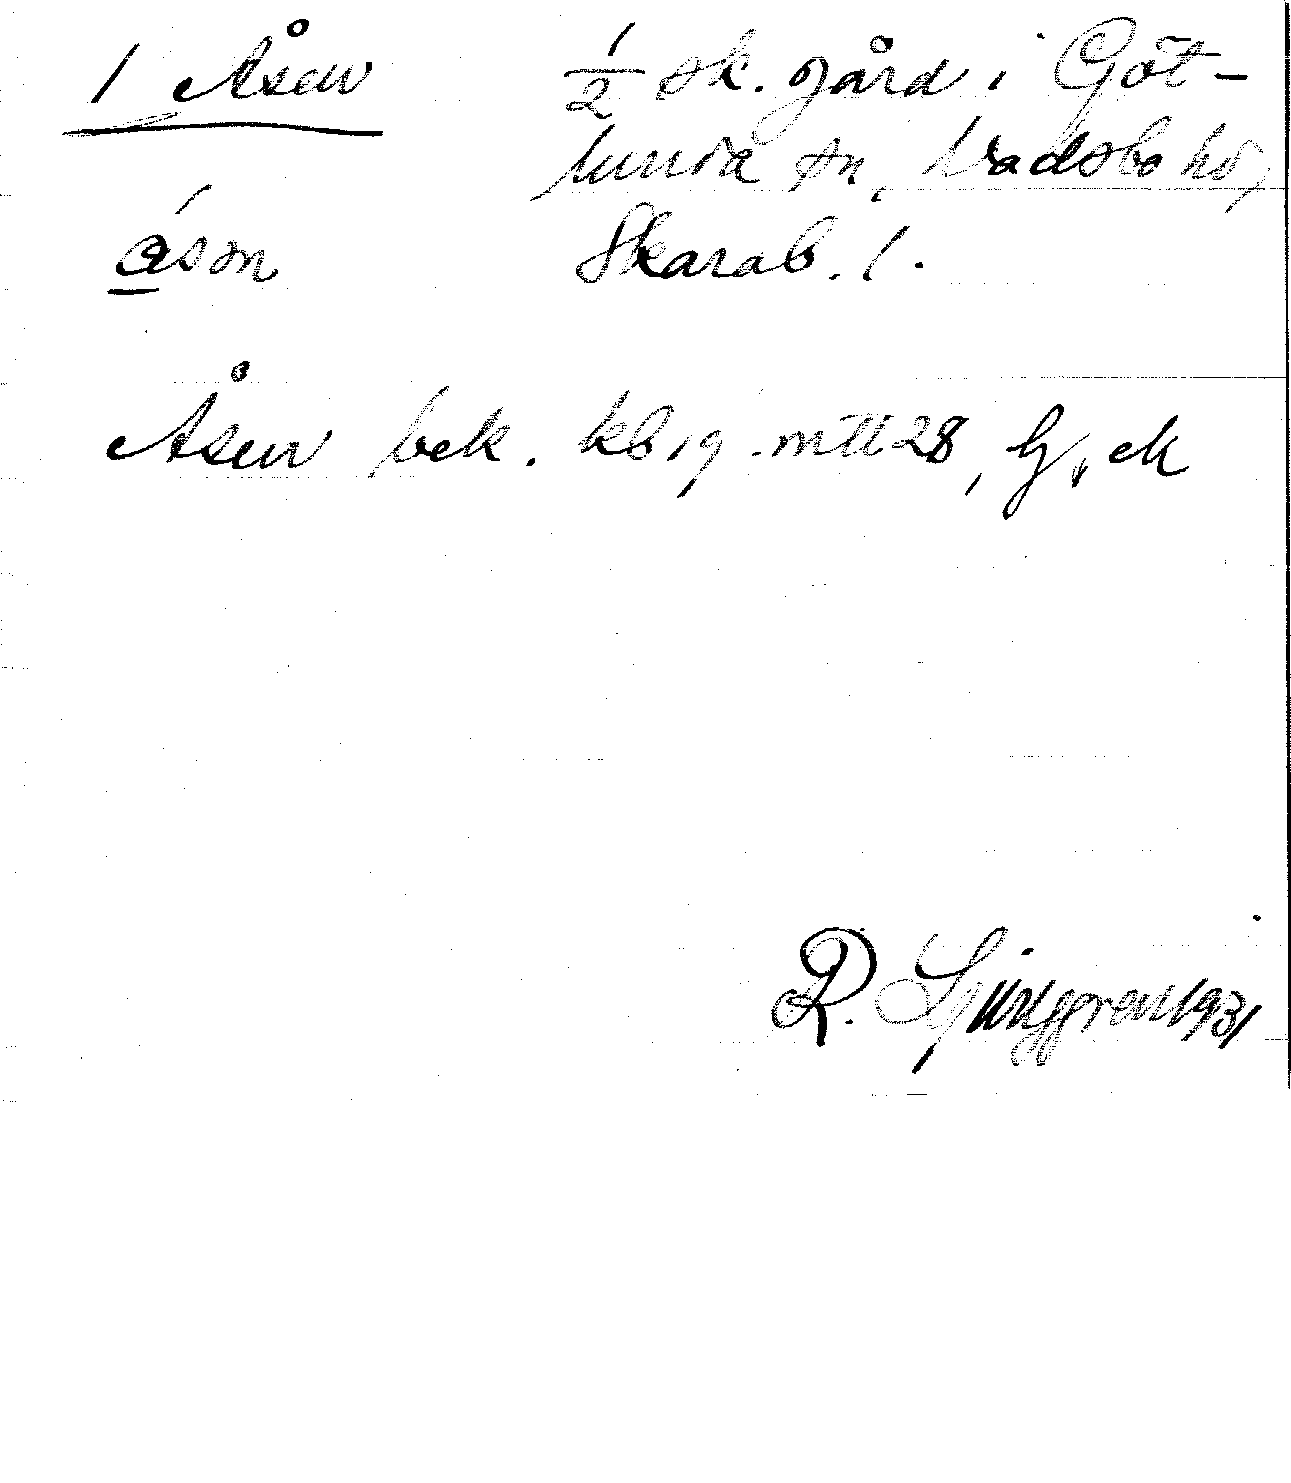 1 Åsen
1/2 sk. gård i Göt-
lunda sn, Vadsbo hd,
Skarab. l.
åsɷn
Åsen bek. kb, g. mtl 28, Gj, ek
R. Ljunggren 1931